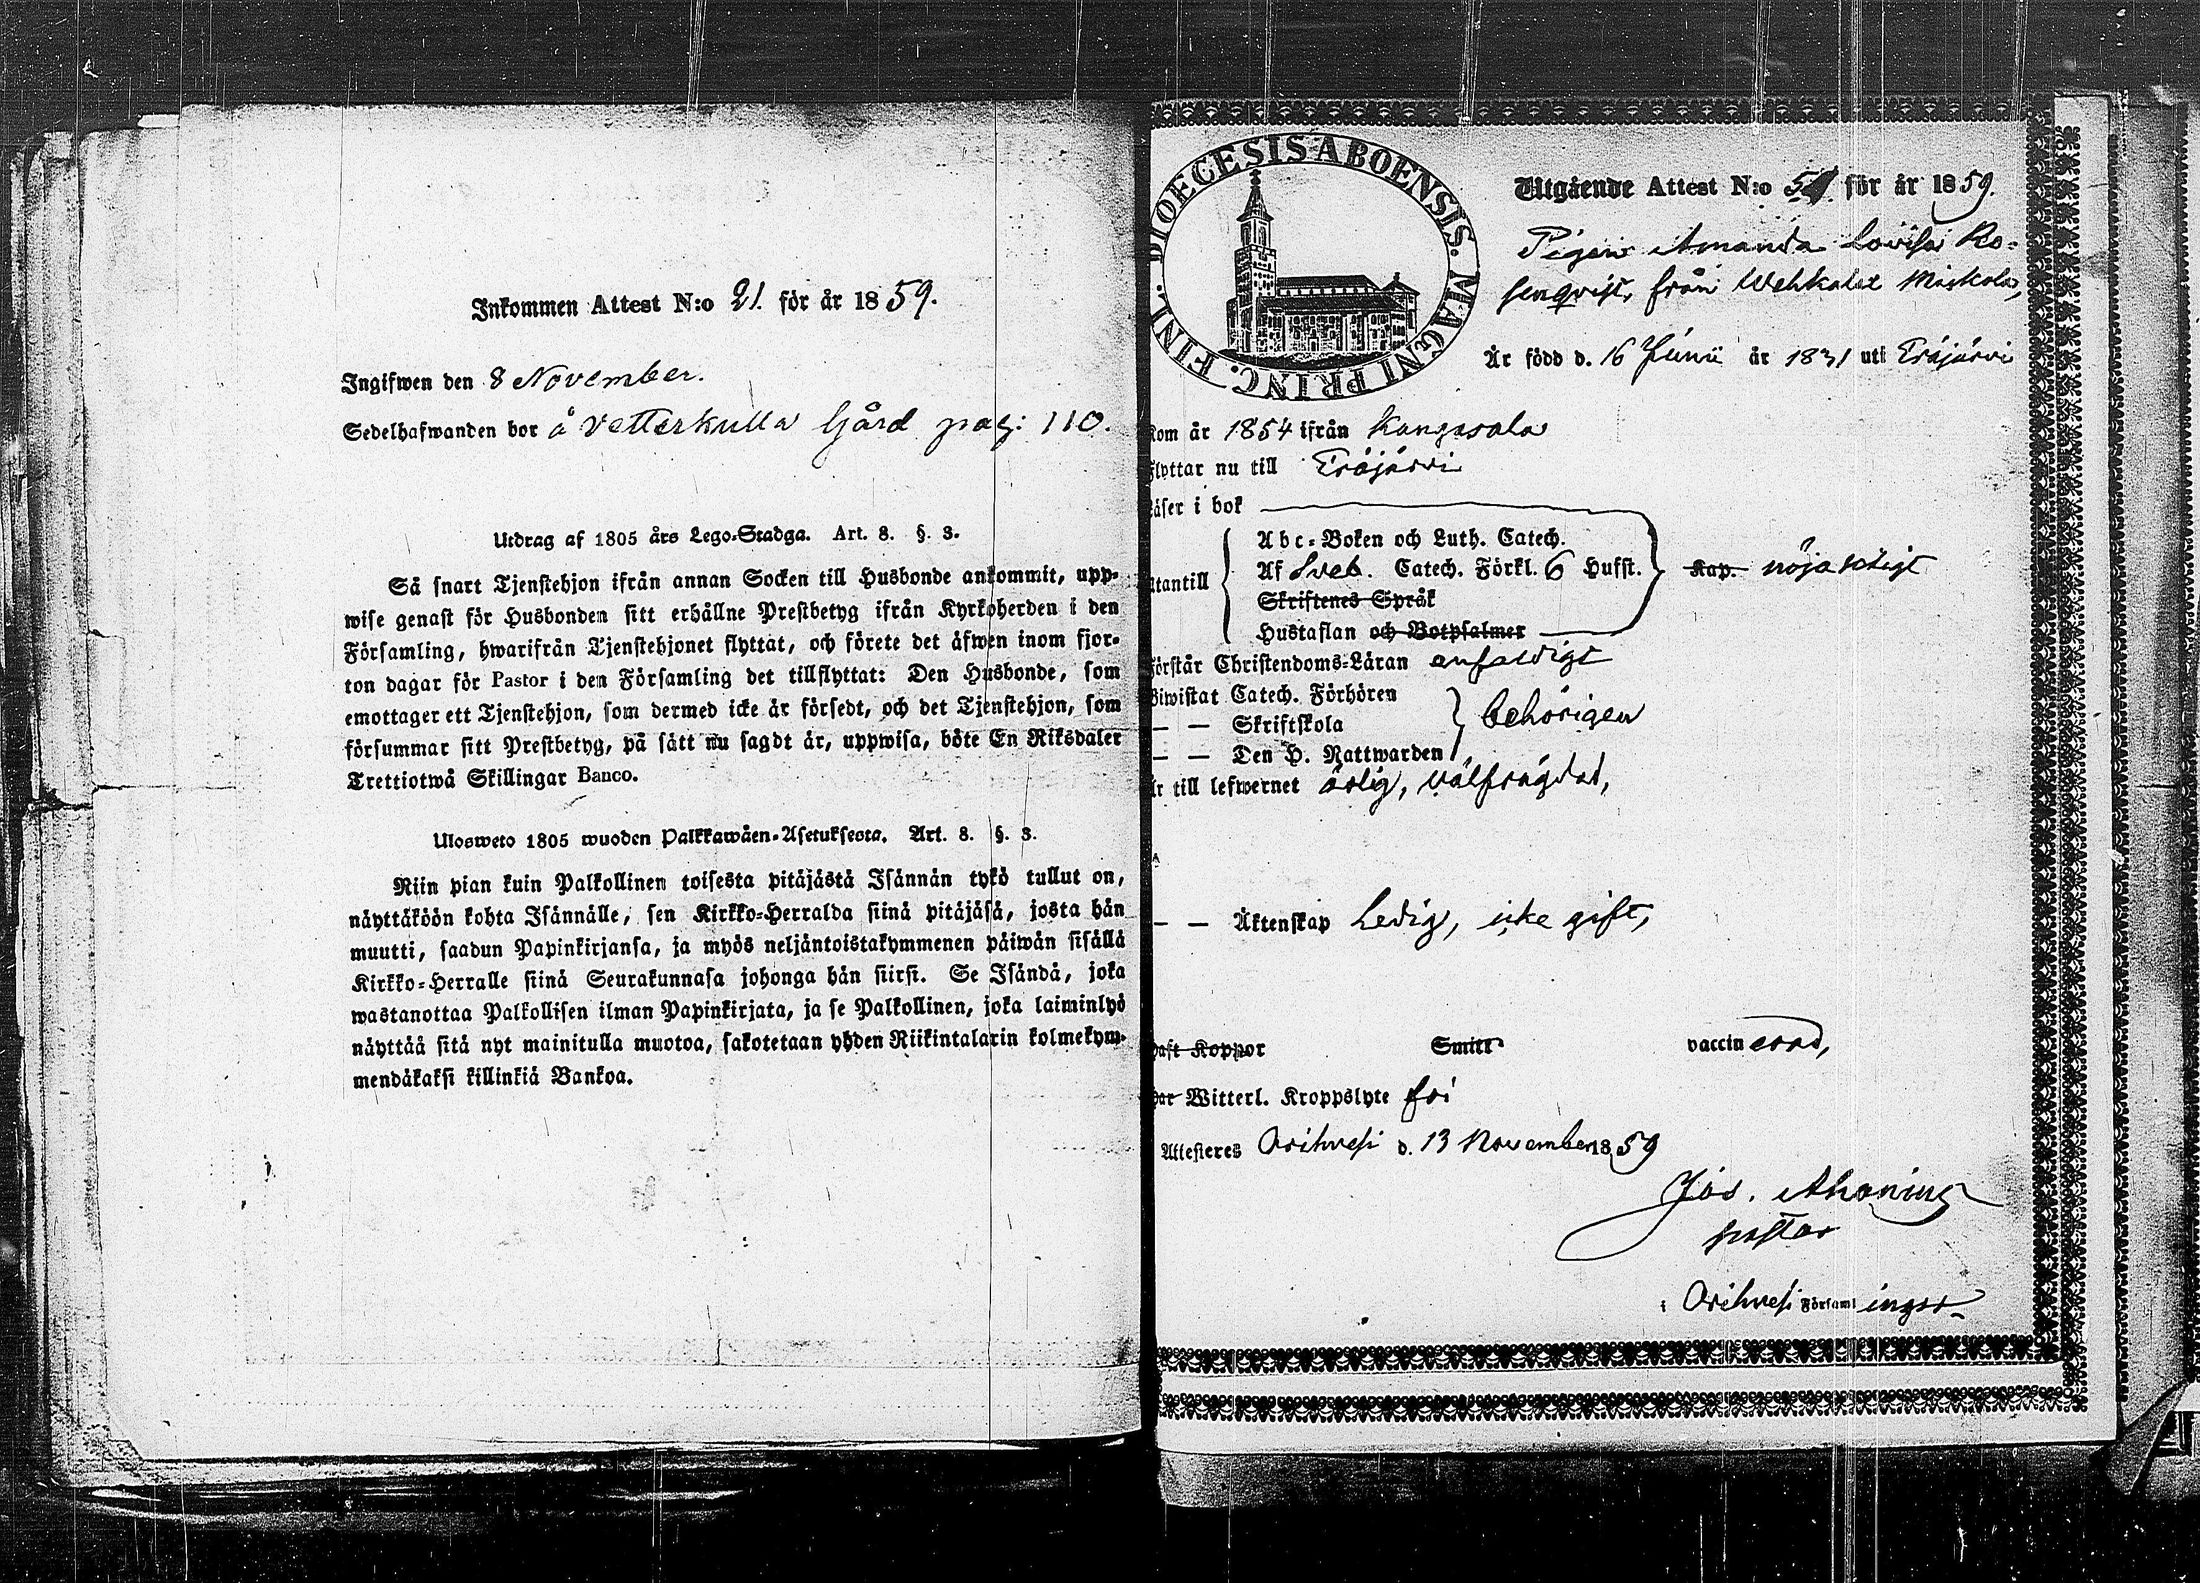 Inkommen Attest N:o 21. för år 1859.
Ingifwen den 8 November.
Sedelhafwanden bor å Vetterkulla Gård pag: 110.
Utdrag af 1805 års Lego-Stadga. Art. 8. §. 3.
Så snart Tjenstehjon ifrån annan Socken till Husbonde ankommit, upp-
wise genast för Husbonden sitt erhållne Prestbetyg ifrån Kyrkoherden i den
Församling, hwarifrån Tjenstehjonet flyttat, och förete det äfwen inom fjor-
ton dagar för Pastor i den Församling det tillflyttat: Den Husbonde, som
emottager ett Tjenstehjon, som dermed icke är försedt, och det Tjenstehjon, som
försummar sitt Prestbetyg, på sätt nu sagdt är, uppwisa, böte En Riksdaler
Trettiotwå Skillingar Banco.
Ulosweto 1805 wuoden Palkkawäen-Asetuksesta. Art. 8. §. 3.
Niin pian kuin Palkollinen toisesta pitäjästä Isännän tykö tullut on,
näyttäköön kohta Isännälle, sen Kirkko-Herralda siinä pitäjäsä, josta hän
muutti, saadun Papinkirjansa, ja myös neljäntoistakymmenen päiwän sisällä
Kirkko-Herralle siinä Seurakunnasa johonga hän siirsi. Se Isändä, joka
wastanottaa Palkollisen ilman Papinkirjata, ja se Palkollinen, joka laiminlyö
näyttää sitä nyt mainitulla muotoa, sakotetaan yhden Riikintalarin kolmekym-
mendäkaksi killinkiä Bankoa.
DIOECESIS ABOENSIS. MAGNI PRINC. FINL.
Utgående Attest N:o för år 1859.
Pigan Amanda Lovisa Ro-
senqvist, från Wehkalax
Är född d. 16 Junii år 1831 uti Eräjärvi
Kom år 1854 ifrån Kangasala
Flyttar nu till Eräjärvi
Läser i bok
Abc-Boken och Luth. Catech.
Utantill Af Sveb. Catech. Förkl. 6 Hufst. Kap. nöjaktigt
Skriftenes Språk
Hustaflan och Botpsalmer
Förstår Christendoms-Läran enfaldigt
Biwistat Catech. Förhören
— — Skriftskola behörigen
— — Den H. Nattwarden
Är till lefwernet ärlig, välfrägdad,
— — Äktenskap Ledig, icke gift,
Haft Koppor Smitt vaccinerad,
Har Witterl. Kroppslyte fri
Attesteres Orihvesi d. 13 November 1859
Jos. Ahonius
pastor
i Orihvesi Församlingar